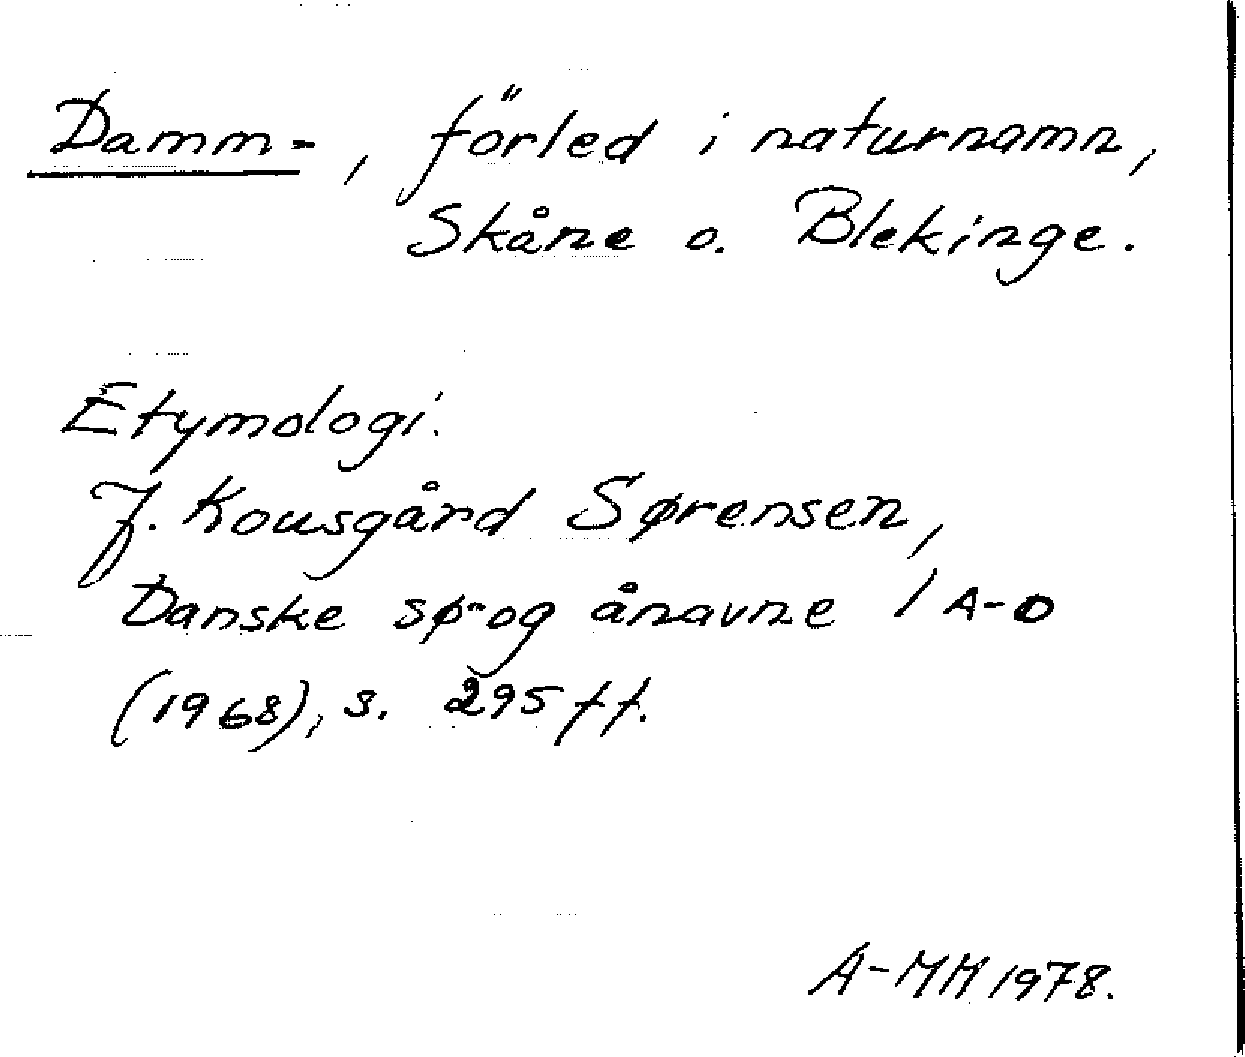 Damm-, förled i naturnamn,
Skåne o. Blekinge.
Etymologi.
J. Kousgård Sørensen,
Danske sø- og ånavne I A-D
(1968), s. 295 ff.
A-MH 1978.